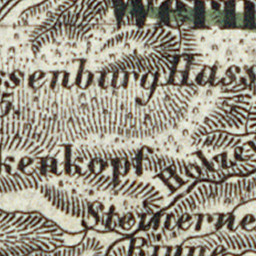 Wern
ssenburg Hass
kenkopf
Holze
Steinerne
Rinne